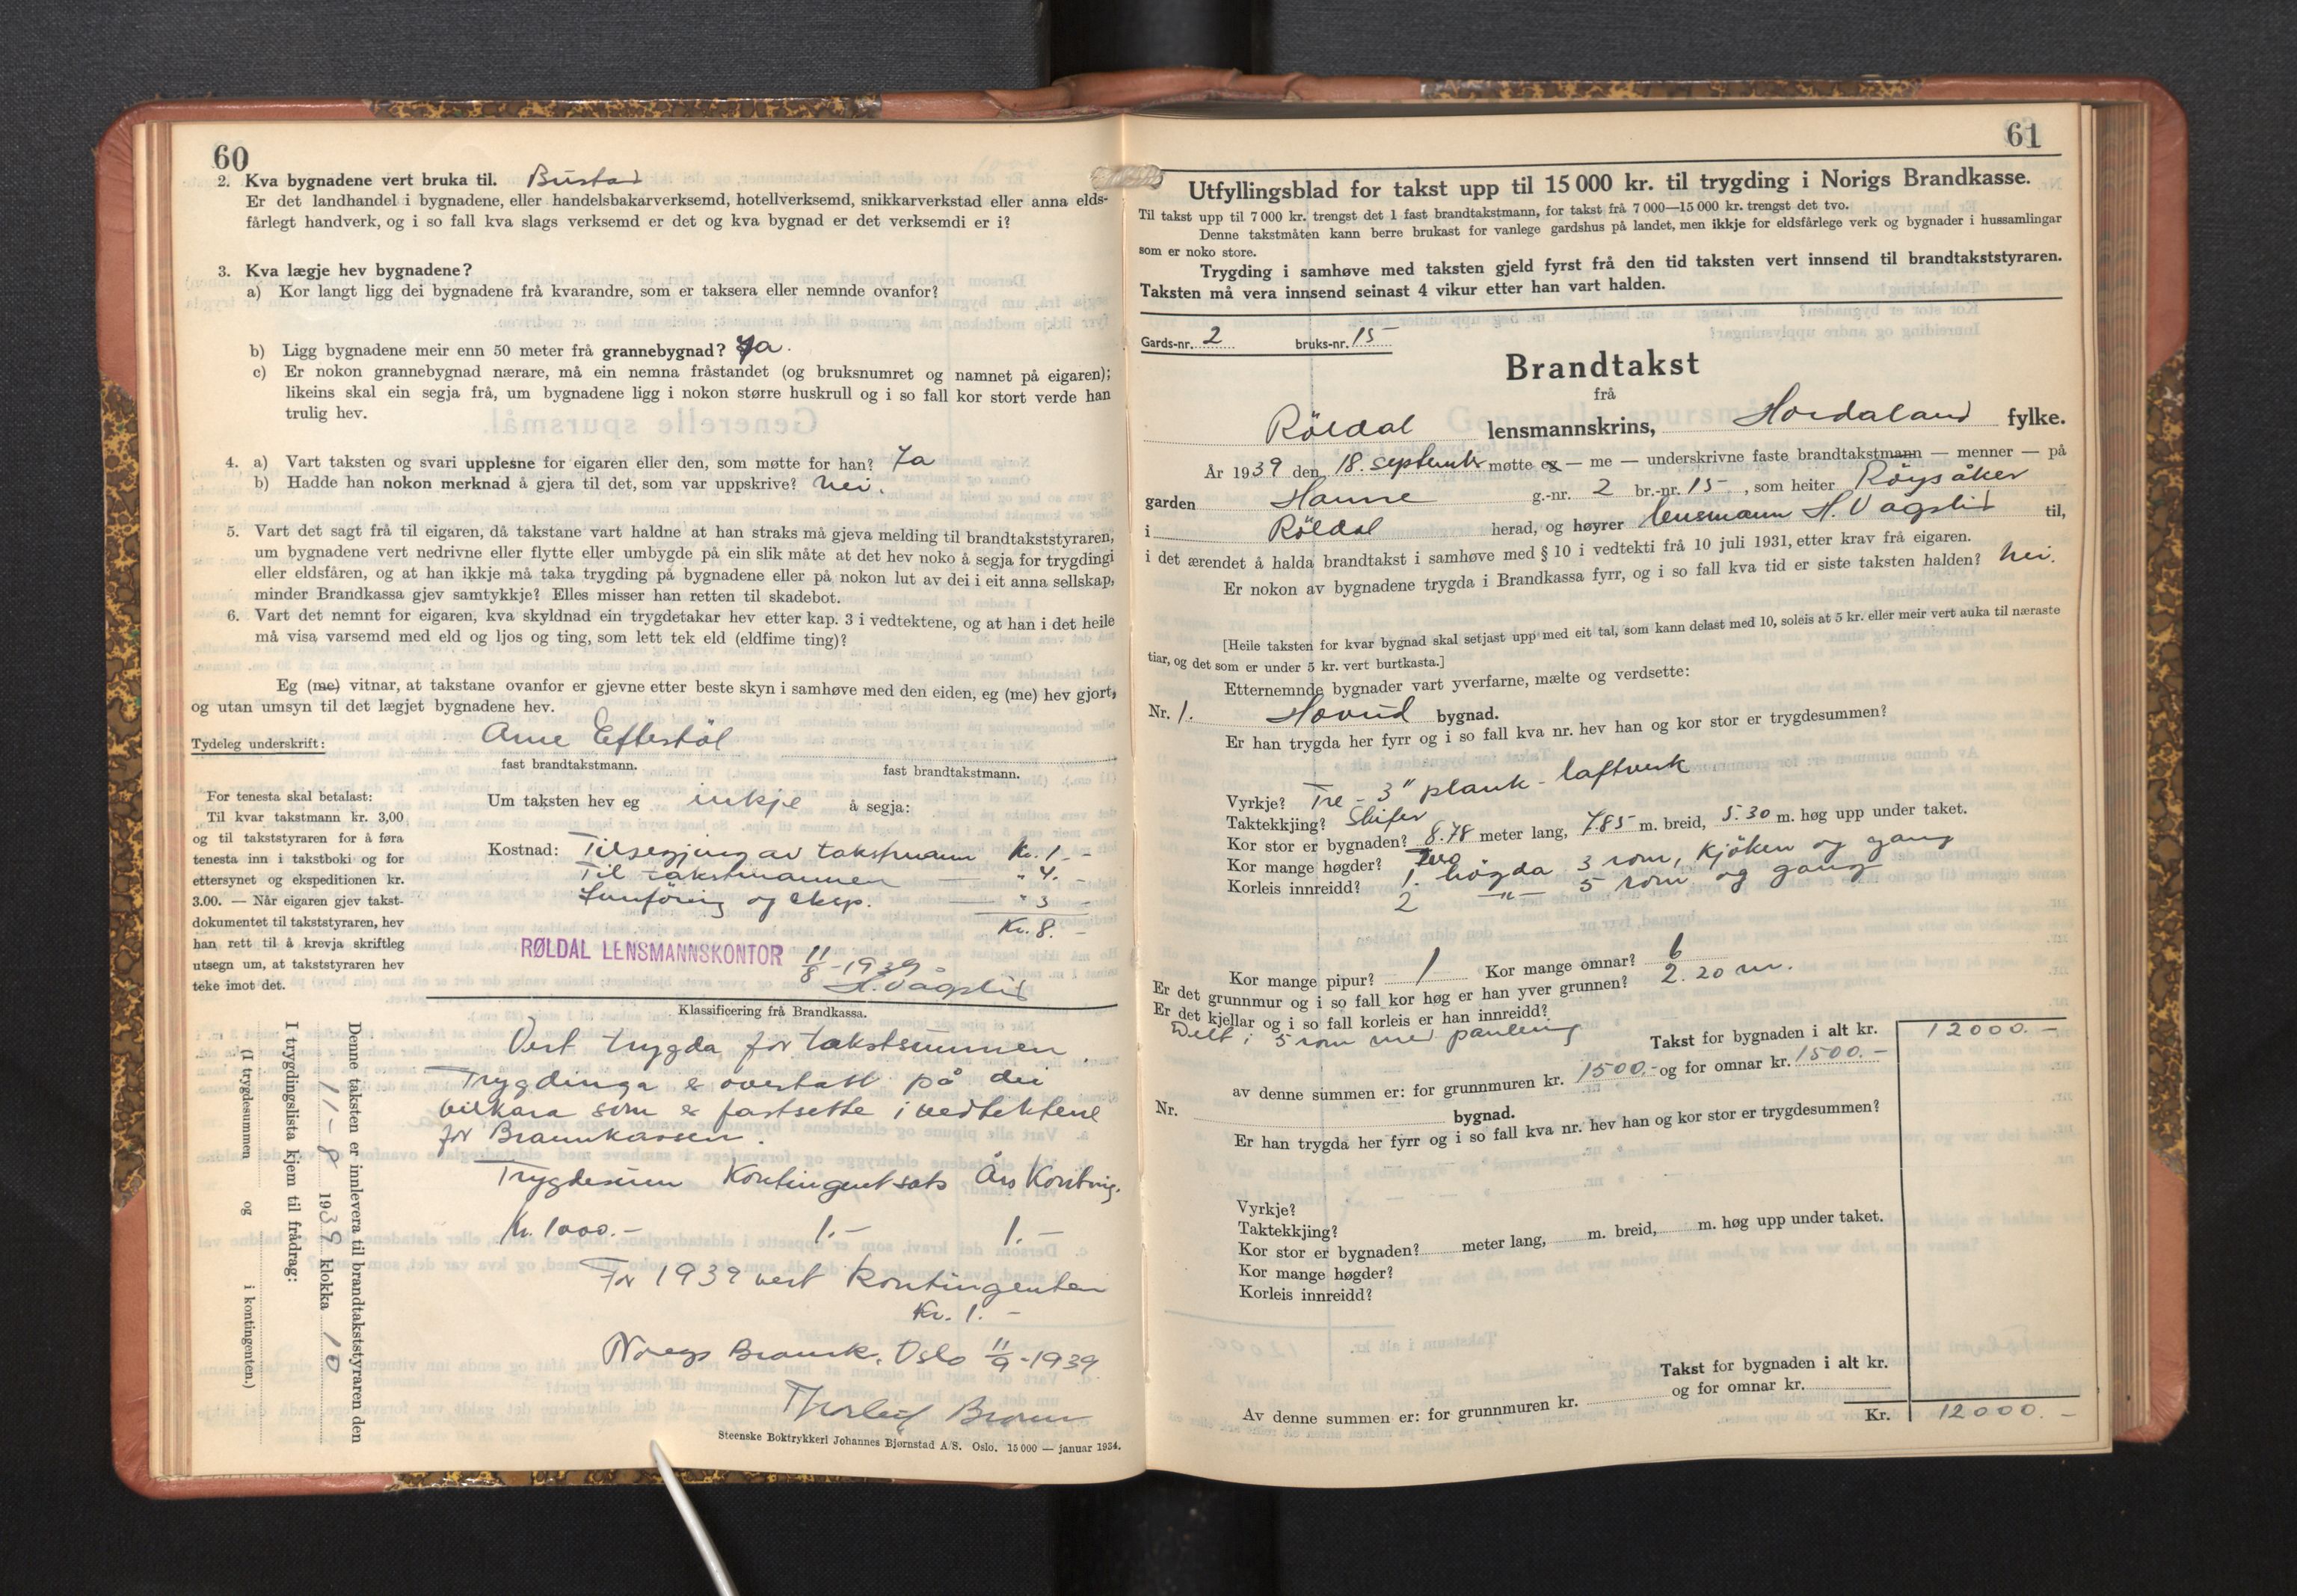 60
2. Kva bygnadene vert bruka til. Bustad
Er det landhandel i bygnadene, eller handelsbakarverksemd, hotellverksemd, snikkarverkstad eller anna elds-
fårlegt handverk, og i so fall kva slags verksemd er det og kva bygnad er det verksemdi er i?
3. Kva lægje hev bygnadene?
a) Kor langt ligg dei bygnadene frå kvarandre, som er taksera eller nemnde ovanfor?
b) Ligg bygnadene meir enn 50 meter frå grannebygnad? Ja.
c) Er nokon grannebygnad nærare, må ein nemna fråstandet (og bruksnumret og namnet på eigaren);
likeins skal ein segja frå, um bygnadene ligg i nokon større huskrull og i so fall kor stort verde han
trulig hev.
4. a) Vart taksten og svari upplesne for eigaren eller den, som møtte for han? Ja
b) Hadde han nokon merknad å gjera til det, som var uppskrive? Nei.
5. Vart det sagt frå til eigaren, då takstane vart haldne at han straks må gjeva melding til brandtakststyraren,
um bygnadene vert nedrivne eller flytte eller umbygde på ein slik måte at det hev noko å segja for trygdingi
eller eldsfåren, og at han ikkje må taka trygding på bygnadene eller på nokon lut av dei i eit anna sellskap,
minder Brandkassa gjev samtykkje? Elles misser han retten til skadebot.
6. Vart det nemnt for eigaren, kva skyldnad ein trygdetakar hev etter kap. 3 i vedtektene, og at han i det heile
må visa varsemd med eld og ljos og ting, som lett tek eld (eldfime ting)?
Eg (me) vitnar, at takstane ovanfor er gjevne etter beste skyn i samhøve med den eiden, eg (me) hev gjort,
og utan umsyn til det lægjet bygnadene hev.
Tydeleg underskrift: Arne Eftestöl
fast brandtakstmann. fast brandtakstmann.
For tenesta skal betalast:
Til kvar takstmann kr. 3,00
og til takststyraren for å føra
tenesta inn i takstboki og for
ettersynet og ekspeditionen kr.
3.00. — Når eigaren gjev takst-
dokumentet til takststyraren, hev
han rett til å krevja skriftleg
utsegn um, at takststyraren hev
teke imot det.
Um taksten hev eg inkje å segja:
Kostnad: Tilsegjing av takstmann Kr. 1.-
Til takstmannen — " 4.-
Innföring og eksp. — " 3 -
Kr. 8.-
RØLDAL LENSMANNSKONTOR 11/8-1939
H. Vågslid
Klassificering frå Brandkassa.
Vert trygda for takstsummen.
Trygdinga er overtatt på dei
vilkåra som er fastsette i vedtektene
for Brannkassen.
Trygdesum Kontingentsats Års Konting.
Kr. 1000.- 1.- 1.-
For 1939 vert kontingenten
Kr. 1.-
Noregs Brannk. Oslo 11/9-1939
Steenske Boktrykkeri Johannes Bjørnstad A/S. Oslo. 15 000 — januar 1934.
Denne taksten er innlevera til brandtakststyraren den
11-8 1939 klokka 10
I trygdingslista kjem til frådrag:
(I trygdesummen og i kontingenten.)
61
Utfyllingsblad for takst upp til 15 000 kr. til trygding i Norigs Brandkasse.
Til takst upp til 7 000 kr. trengst det 1 fast brandtakstmann, for takst frå 7 000—15 000 kr. trengst det tvo.
Denne takstmåten kann berre brukast for vanlege gardshus på landet, men ikkje for eldsfårlege verk og bygnader i hussamlingar
som er noko store.
Trygding i samhøve med taksten gjeld fyrst frå den tid taksten vert innsend til brandtakststyraren.
Taksten må vera innsend seinast 4 vikur etter han vart halden.
Gards-nr. 2 bruks-nr. 15
Brandtakst
frå
Röldal lensmannskrins, Hordaland fylke.
År 1939 den 18. september møtte eg — me — underskrivne faste brandtakstmann — menner — på
garden Hamre g.-nr. 2 br.-nr. 15, som heiter Röysåker
i Röldal herad, og høyrer lensmann H. Vågslid til,
i det ærendet å halda brandtakst i samhøve med § 10 i vedtekti frå 10 juli 1931, etter krav frå eigaren.
Er nokon av bygnadene trygda i Brandkassa fyrr, og i so fall kva tid er siste taksten halden? Nei.
[Heile taksten for kvar bygnad skal setjast upp med eit tal, som kann delast med 10, soleis at 5 kr. eller meir vert auka til næraste
tiar, og det som er under 5 kr. vert burtkasta.]
Etternemnde bygnader vart yverfarne, mælte og verdsette:
Nr. 1. Hovud bygnad.
Er han trygda her fyrr og i so fall kva nr. hev han og kor stor er trygdesummen?
Vyrkje? Tre - 3" plank - laftverk
Taktekkjing? Skifer
Kor stor er bygnaden? 8.78 meter lang, 7.85 m. breid, 5.30 m. høg upp under taket.
Kor mange høgder? Two
Korleis innreidd? 1. högda 3 rom, kjöken og gang
2 —"— 5 rom og gang
Kor mange pipur? 1 Kor mange omnar? 6
Er det grunnmur og i so fall kor høg er han yver grunnen? 2.20 m.
Er det kjellar og i so fall korleis er han innreidd?
Delt i 5 rom med paneling
Takst for bygnaden i alt kr. 12000.-
av denne summen er: for grunnmuren kr. 1500.- og for omnar kr. 1500.-
Nr. bygnad.
Er han trygda her fyrr og i so fall kva nr. hev han og kor stor er trygdesummen?
Vyrkje?
Taktekkjing?
Kor stor er bygnaden? meter lang, m. breid, m. høg upp under taket.
Kor mange høgder?
Korleis innreidd?
Takst for bygnaden i alt kr.
Av denne summen er: for grunnmuren kr. og for omnar kr.
Kr. 12000.-